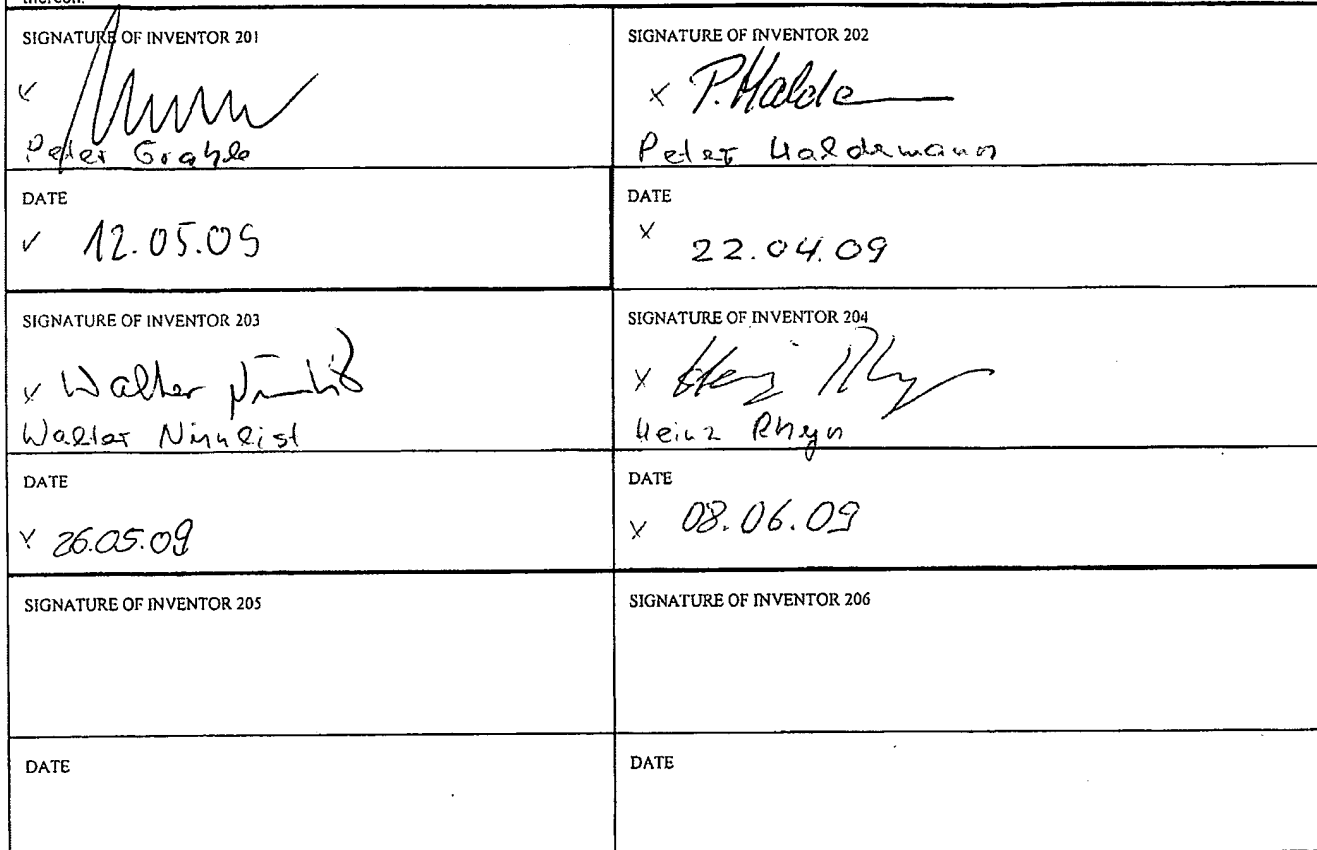 thereon.
SIGNATURE OF INVENTOR 201
x
Peter Grahle
SIGNATURE OF INVENTOR 202
x P. Halde
Peter Haldemann
DATE
✓ 12.05.09
DATE
x 22.04.09
SIGNATURE OF INVENTOR 203
x Walter
Walter Nirnlist
SIGNATURE OF INVENTOR 204
x Heinz Rhyn
Heinz Rhyn
DATE
x 26.05.09
DATE
x 08.06.09
SIGNATURE OF INVENTOR 205
SIGNATURE OF INVENTOR 206
DATE
DATE